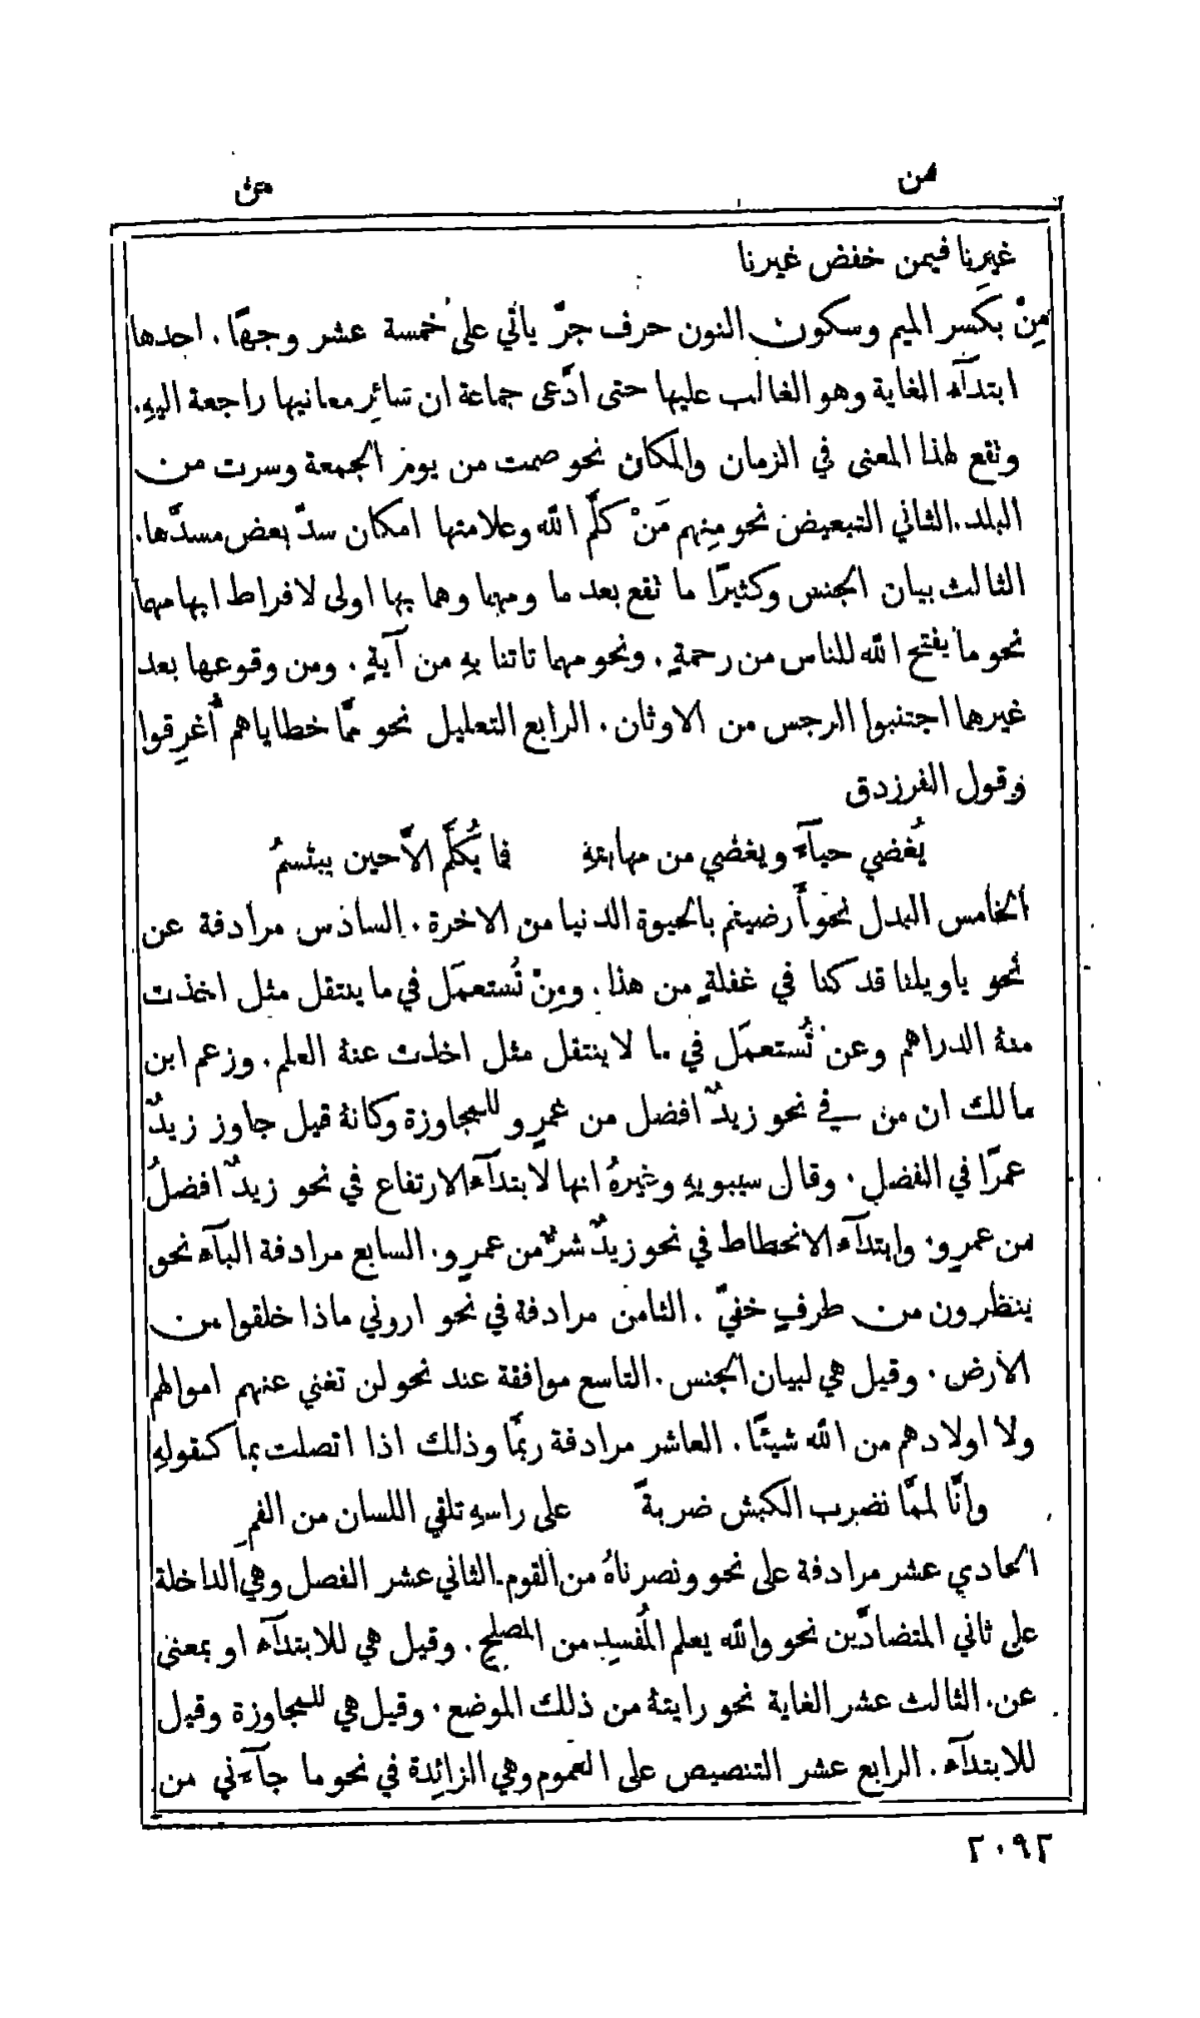 من
من
غيرنا فيمن خفض غيرنا
مِنْ بكَسر الميم وسكون النون حرف جرّ ياتي على خمسة عشر وجهًا. احدها
ابتدآء الغاية وهو الغالب عليها حتى ادَّعى جماعة ان سَائِر معانيها راجعة اليهِ.
وتقع لهذا المعنى في الزمان والمكان نحو صمت من يوم الجمعة وسرت من
البلد. الثاني التبعيض نحو مِنهم مَنْ كلَّم الله وعلامتها امكان سدّ بعض مسدّها.
الثالث بيان الجنس وكثيرًا ما تقع بعد ما ومهما وهما بها اولى لافراط ابهامهما
نحو ما يفتح الله للناس من رحمةٍ. ونحو مهما تاتنا بهِ من آيةٍ. ومن وقوعها بعد
غيرهما اجتنبوا الرجس من الاوثان. الرابع التعليل نحو ممّا خطاياهم أُغرِقوا
وقول الفرزدق
يُغضي حيآءً ويغضي من مهابتهِ فما يُكلَّم الَّا حين يبتسمُ
الخامس البدل نحو أرضيتم بالحيوة الدنيا من الاخرة. السادس مرادفة عن
نحو ياويلنا قد كنا في غفلةٍ من هذا. ومِنْ تُستعمَل في ما ينتقل مثل اخذت
منهُ الدراهم وعن تُستعمَل في ما لا ينتقل مثل اخذت عنهُ العلم. وزعم ابن
مالك ان من في نحو زيدٌ افضل من عمرٍو للمجاوزة وكانهُ قيل جاوز زيدٌ
عمرًا في الفضل. وقال سيبويهِ وغيرهُ انها لابتدآء الارتفاع في نحو زيدٌ افضلُ
من عمرٍو. وابتدآء الانحطاط في نحو زيدٌ شرٌّ من عمرٍو. السابع مرادفة البآء نحو
ينظرون من طرفٍ خفيّ. الثامن مرادفة في نحو اروني ماذا خلقوا من
الأرض. وقيل هي لبيان الجنس. التاسع موافقة عند نحو لن تغني عنهم اموالهم
ولا اولادهم من الله شيئًا. العاشر مرادفة ربَّما وذلك اذا اتصلت بما كقولهِ
وانَّا لممَّا نضرب الكبش ضربةً على راسهِ تلقي اللسان من الفمِ
الحادي عشر مرادفة على نحو ونصرناهُ من القوم. الثاني عشر الفصل وهي الداخلة
على ثاني المتضادَّين نحو والله يعلم المُفسِد من المصلح. وقيل هي للابتدآء او بمعنى
عن. الثالث عشر الغاية نحو رايتهُ من ذلك الموضع. وقيل هي للمجاوزة وقيل
للابتدآء. الرابع عشر التنصيص على العموم وهي الزائدة في نحو ما جآءني من
٢٠٩٢